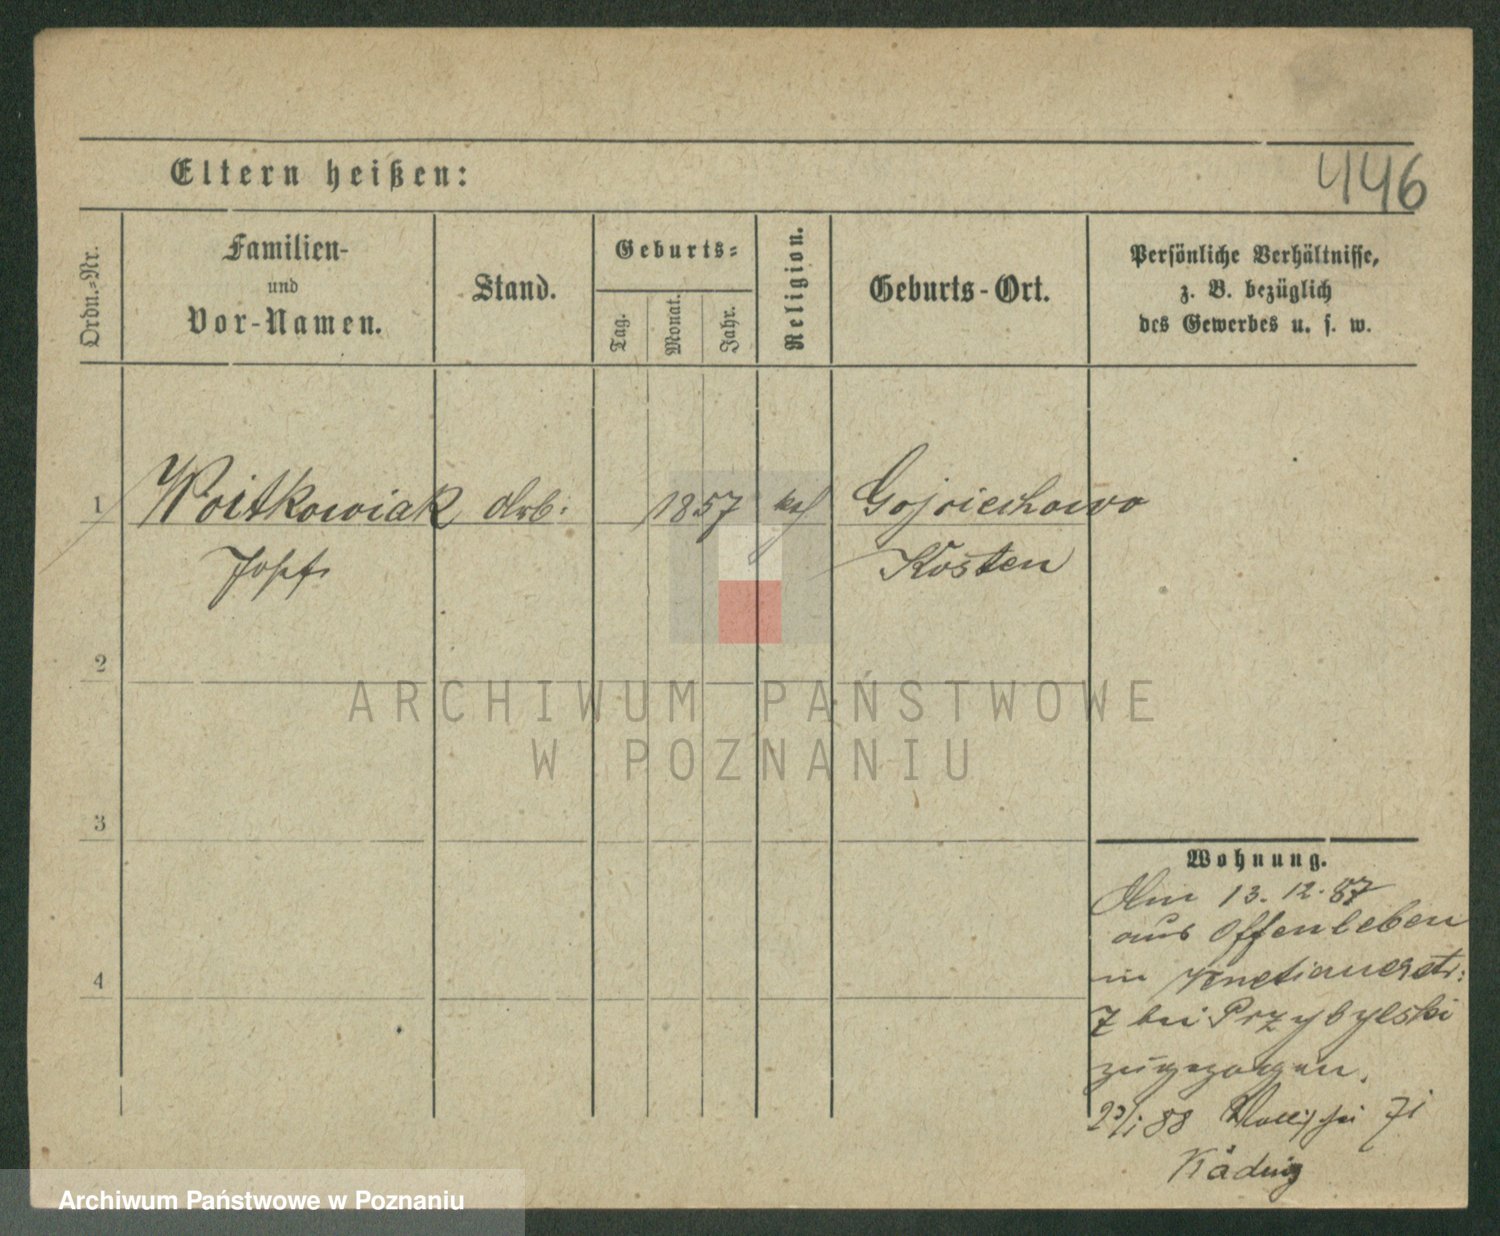 446
Eltern heißen:
Ordn.-Nr.
Familien-
und
Vor-Namen.
Stand.
Geburts-
Tag.
Monat.
Jahr.
Religion.
Geburts-Ort.
Persönliche Verhältnisse,
z. B. bezüglich
des Gewerbes u. s. w.
1 Woitkowiak Arb. 1857 kath
Josef
Kosten
2
3
4
Wohnung.
Am 13. 12. 87
aus Offenleben
in Venetianerstr:
7 bei Przybylski
zugezogen.
23/1 88 Wallischei 71
Käding
ARCHIWUM PAŃSTWOWE
W POZNANIU
Archiwum Państwowe w Poznaniu